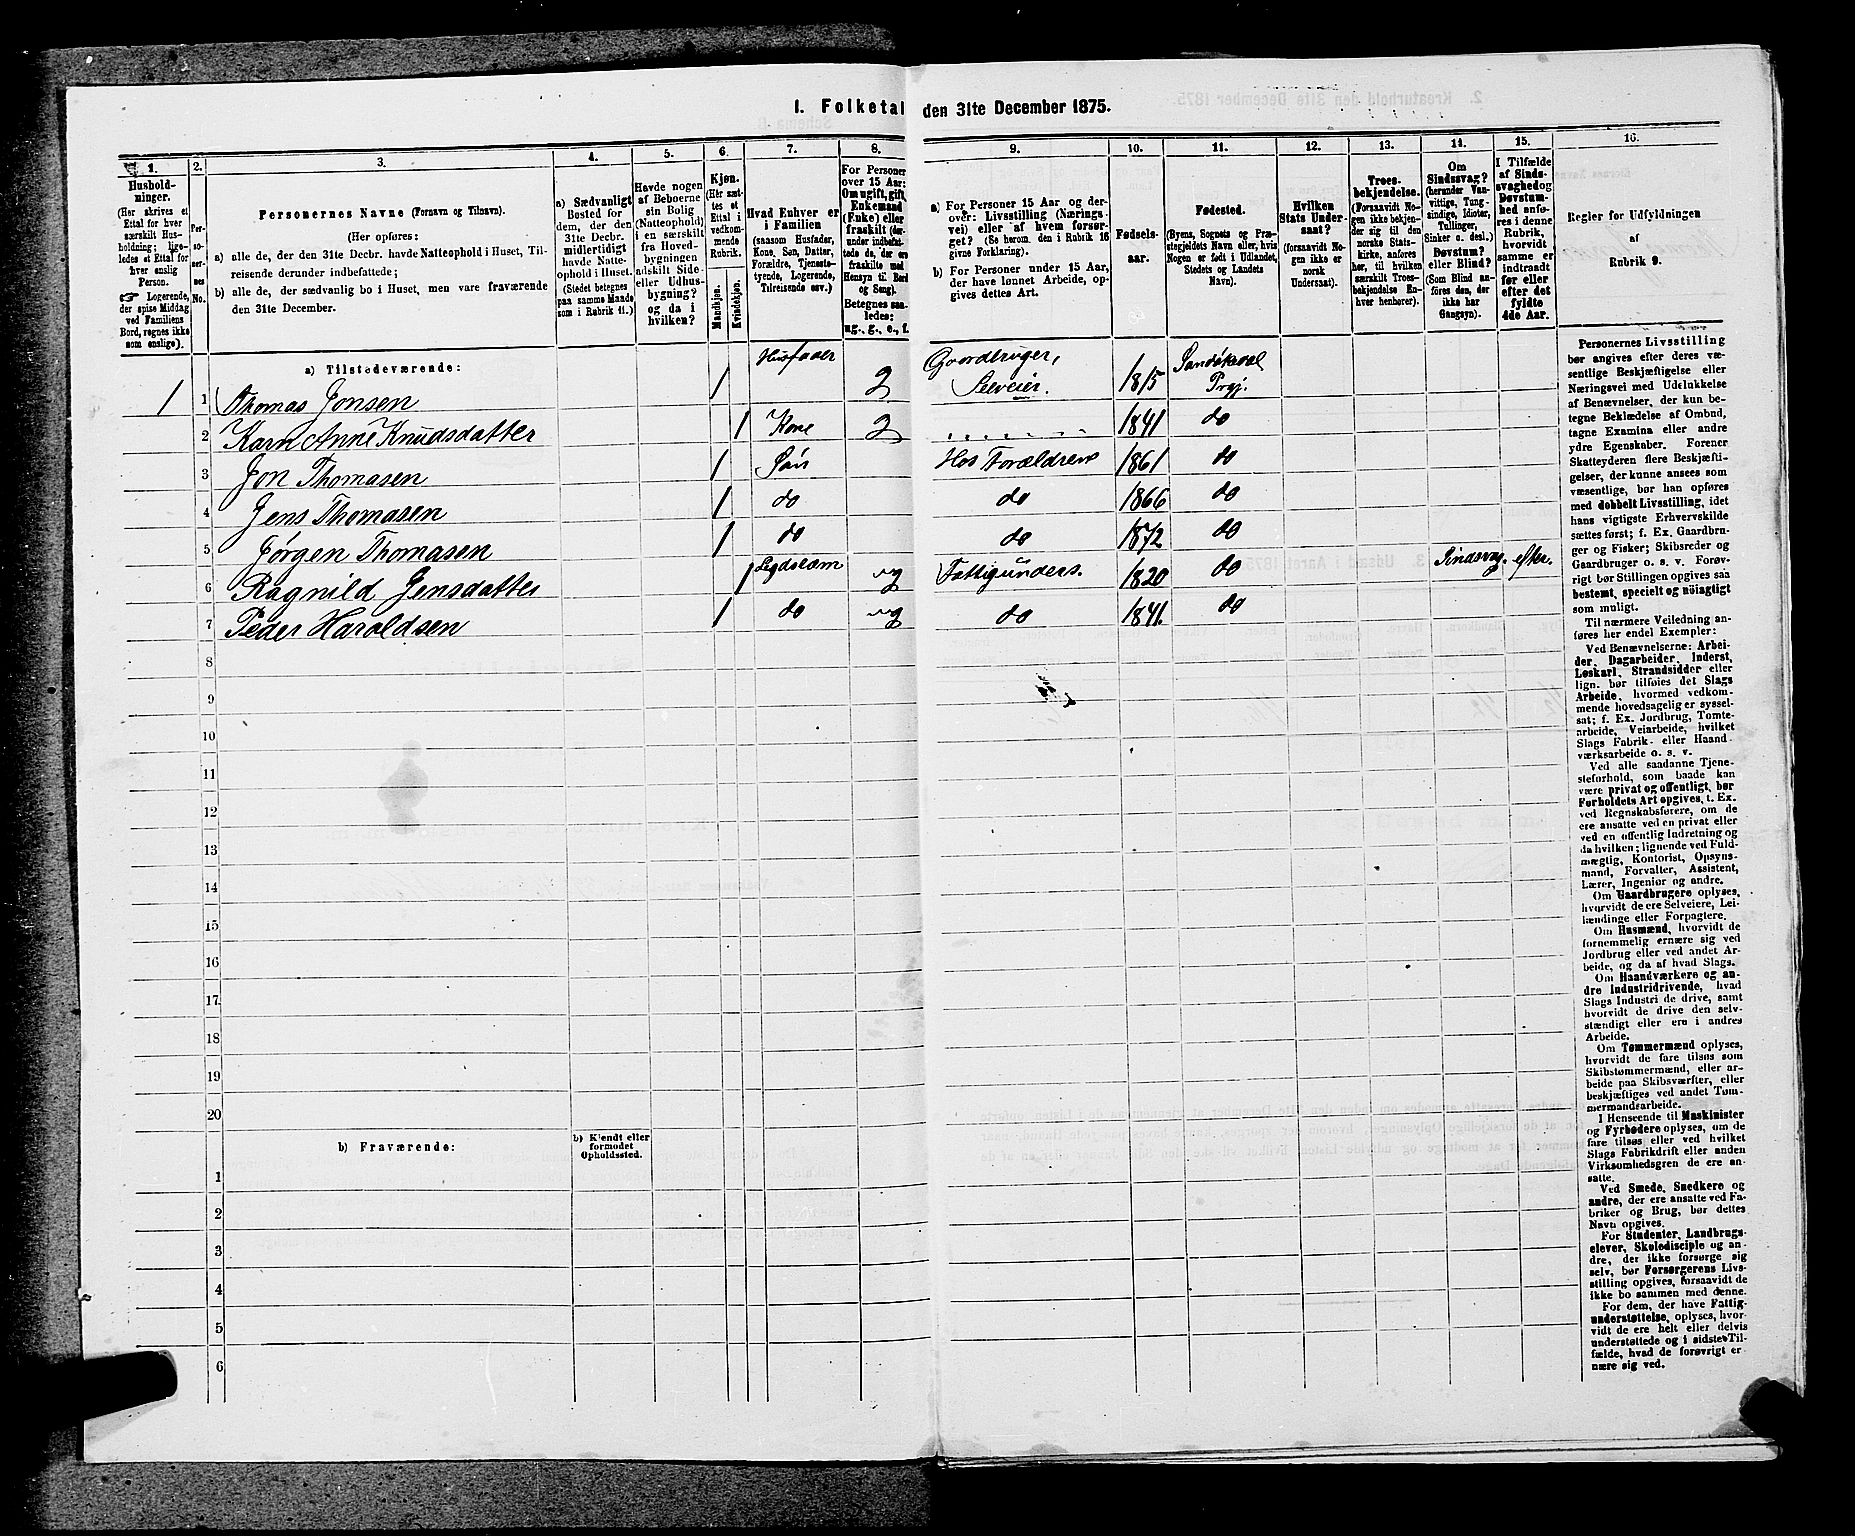 1. Folketal den 31te December 1875.
1.
2.
3.
4.
5.
6.
7.
8.
9.
10.
11.
12.
13.
14.
15.
16.
Husholdninger.
(Her skrives et
Ettal for hver
særskilt Husholdning;
ligeledes et Ettal
for hver
enslig
Person.
☞ Logerende,
der spise Middag
ved Familiens
Bord, regnes ikke
som enslige).
Personernes No.
Personernes Navne (Fornavn og Tilnavn).
(Her opføres:
a) alle de, der den 31te Decbr. havde Natteophold i Huset, Tilreisende derunder indbefattede;
b) alle de, der sædvanlig bo i Huset, men vare fraværende
den 31te December.
a) Sædvanligt
Bosted for
dem, der den
31te Decbr.
midlertidigt
havde Natteophold i Huset.
(Stedet betegnes
paa samme Maade
som i Rubrik 11.)
Havde nogen
af Beboerne
sin Bolig
(Natteophold)
i en særskilt
fra Hovedbygningen
adskilt Side-
eller Udhusbygning?
og da i
hvilken?
Kjøn.
(Her sættes et
Ettal i
vedkommende
Rubrik.
Mandkjøn.
Kvindekjøn.
Hvad Enhver er
i Familien
(saasom Husfader,
Kone, Søn, Datter,
Forældre, Tjenestetyende, Logerende,
Tilreisende osv.)
For Personer
over 15 Aar:
Om ugift, gift,
Enkemand
(Enke) eller
fraskilt (derunder indbefattede de, der ere
fraskilte med
Hensyn til Bord
og Seng).
Betegnes saaledes:
ug., g., e., f.
a) For Personer 15 Aar og derover: Livsstilling (Næringsvei) eller af hvem forsørget? (Se herom. den i Rubrik 16
givne Forklaring).
b) For Personer under 15 Aar,
der have lønnet Arbeide, opgives dettes Art.
Fødsels-
aar.
Fødested.
(Byens, Sognets og Præstegjeldets Navn eller, hvis
Nogen er født i Udlandet,
Stedets og Landets
Navn).
Hvilken
Stats Undersaat?
(forsaavidt Nogen ikke er
norsk
Undersaat).
Troesbekjendelse.
(Forsaavidt Nogen ikke bekjender sig til den
norske Statskirke, anføres
her, til hvilken
særskilt Troesbekjendelse Enhver henhører).
Om
Sindssvag?
(herunder Vanvittige, Tungsindige, Idioter,
Tullinger,
Sinker o. desl.)
Døvstum?
eller Blind?
(Som Blind anføres den, der
ikke har
Gangsyn).
I Tilfælde
af Sindssvaghed og
Døvstumhed anføres i denne
Rubrik,
hvorvidt
samme er
indtraadt
før eller
efter det
fyldte
4de Aar.
Regler for Udfyldningen
af
Rubrik 9.
a) Tilstedeværende:
1 1 Thomas Jonsen 1 Husfader 2 Gaardbruger, Selveier. 1815 Sandøkedal Prgj.
2 Karn Anne Knudsdatter 1 Kone 2 1841 do
3 Jon Thomasen 1 Søn Hos Forældrene 1861 do
4 Jens Thomasen 1 do do 1866 do
5 Jørgen Thomasen 1 do do 1872 do
6 Ragnild Jensdatter 1 Legdslam ug Fattigunders. 1820 do Sindsvag. efter.
7 Peder Haroldsen 1 do ug do 1841. do
8
9
10
11
12
13
14
15
16
17
18
19
20
b) Fraværende:
b) Kjendt eller
formodet
Opholdssted.
1
2
3
4
5
6
Personernes Livsstilling
bør angives efter deres væsentlige Beskjæftigelse eller
Næringsvei med Udelukkelse
af Benævnelser, der kun betegne Beklædelse af Ombud,
tagne Examina eller andre
ydre Egenskaber. Forener
Skatteyderen flere Beskjæftigelser, der kunne ansees som
væsentlige, bør han opføres
med dobbelt Livsstilling, idet
hans vigtigste Erhvervskilde
sættes først; f. Ex. Gaardbruger og Fisker; Skibsreder og
Gaardbruger o. s. v. Forøvrigt bør Stillingen opgives saa
bestemt, specielt og nöiagtigt
som muligt.
Til nærmere Veiledning anføres her endel Exempler:
Ved Benævnelserne: Arbeider, Dagarbeider, Inderst,
Løskarl, Strandsidder eller
lign. bør tilføies det Slags
Arbeide, hvormed vedkommende hovedsagelig er sysselsat; f. Ex. Jordbrug, Tomtearbeide, Veiarbeide, hvilket
Slags Fabrik- eller Haandværksarbeide o. s. v.
Ved alle saadanne Tjenesteforhold, som baade kan
være privat og offentligt, bør
Forholdets Art opgives, t. Ex.
ved Regnskabsførere, om de
ere ansatte ved en privat eller
ved en offentlig Indretning og
da hvilken; lignende ved Fuldmægtig, Kontorist, Opsynsmand, Forvalter, Assistent,
Lærer, Ingeniør og andre.
Om Gaardbrugere oplyses,
hvorvidt de ere Selveiere, Leilændinge eller Forpagtere.
Om Husmænd, hvorvidt de
fornemmelig ernære sig ved
Jordbrug eller ved andet Arbeide, og da af hvad Slags.
Om Haandværkere og andre Industridrivende, hvad
Slags Industri de drive, samt
hvorvidt de drive den selvstændigt eller ere i andres
Arbeide.
Om Tømmermænd oplyses,
hvorvidt de fare tilsøs som
Skibstømmermænd, eller arbeide paa Skibsværfter, eller
beskjæftiges ved andet Tømmermandsarbeide.
I Henseende til Maskinister
og Fyrbødere oplyses, om de
fare tilsøs eller ved hvilket
Slags Fabrikdrift eller anden
Virksomhedsgren de ere ansatte.
Ved Smede, Snedkere og
andre, der ere ansatte ved Fabriker og Brug, bør dettes
Navn opgives.
For Studenter, Landbrugselever, Skoledisciple og andre, der ikke forsørge sig
selv, bør Forsørgerens Livsstilling opgives, forsaavidt de
ikke bo sammen med denne.
For dem, der have Fattigunderstøttelse, oplyses, hvorvidt de ere helt eller delvis
understøttede og i sidste Tilfælde, hvad de forøvrigt ernære sig ved.